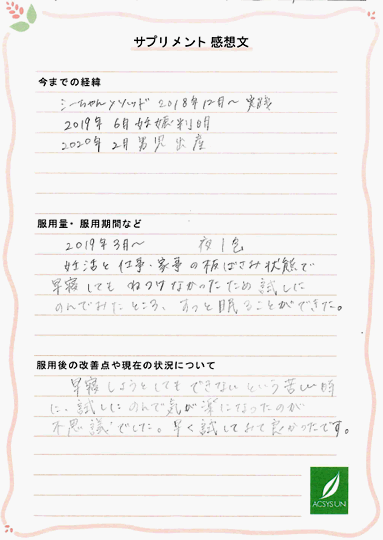 サプリメント 感想文
今までの経緯
シーちゃんメソッド 2018年12月〜 実践
2019年 6月 妊娠判明
2020年 2月 男児 出産
服用量・服用期間など
2019年 3月〜 夜1包
妊活と仕事・家事の板ばさみ状態で
早寝しても ねつけなかったため 試しに
のんでみたところ、すっと眠ることができた。
服用後の改善点や現在の状況について
早寝しようとしてもできないという苦しい時
に、試しにのんで気が楽になったのが
不思議でした。早く試してみて良かったです。
ACSYSUN